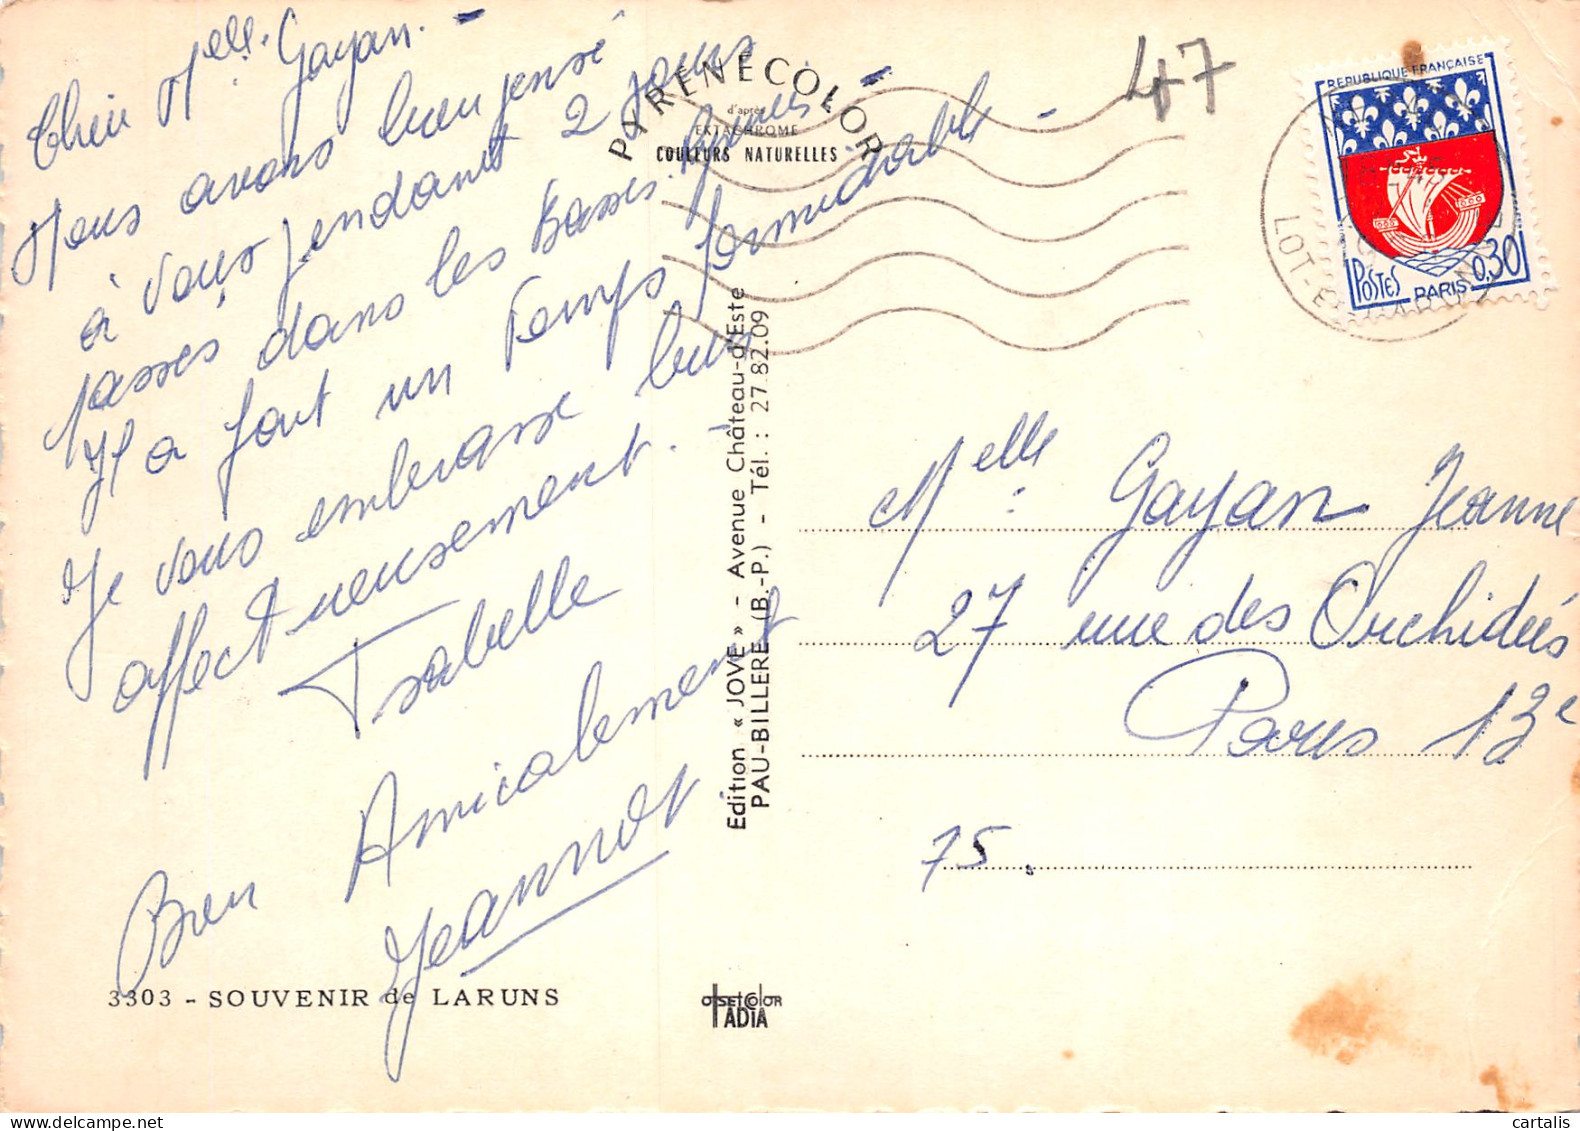 Chère Melle. Gayan. -
Nous avons bien pensé
à vous pendant 2 jours
passés dans les Basses. Pyrénés -
Il a fait un temps formidable -
Je vous embrasse bien
affectueusement. -
Isabelle
Bien Amicalement
Jeannot
3303 - SOUVENIR de LARUNS
PYRENÉCOLOR
d'après
EKTACHROME
COULEURS NATURELLES
Edition « JOVE » - Avenue Château-d'Este
PAU-BILLERE (B.-P.) - Tél. : 27.82.09
OFFSETCOLOR
IADIA
47
REPUBLIQUE FRANÇAISE
POSTES
0,30
PARIS
LOT-ET-GARONNE
Melle : Gayan Jeanne
27 rue des Orchidées
Paris 13e
75.
cartalis